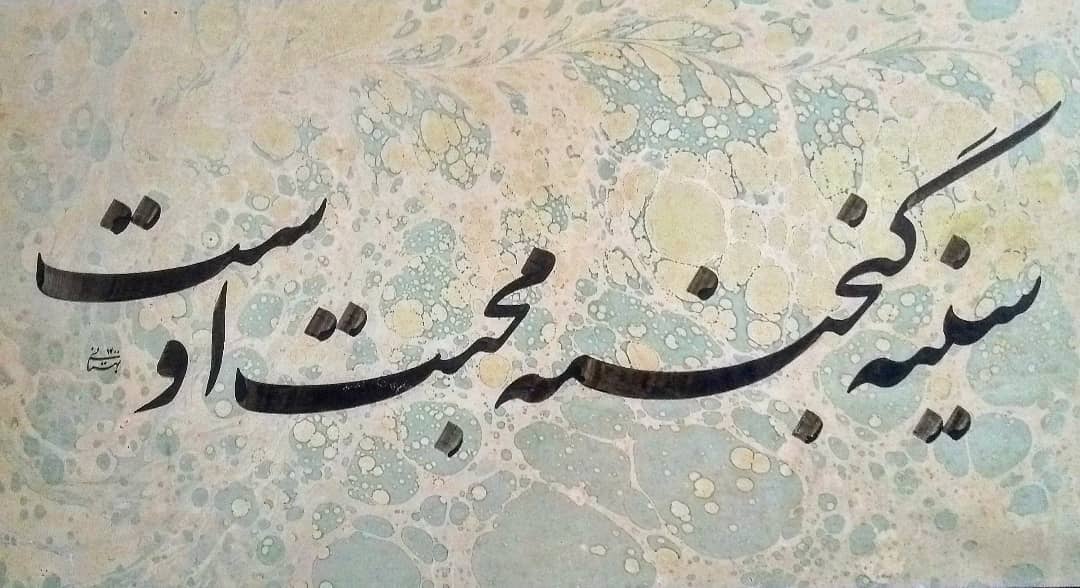 سینه گنجینه محبت اوست
۱۴۰۰